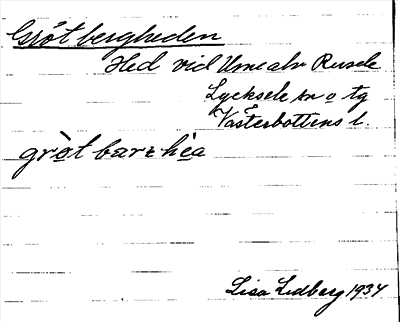 Grötbergheden
Hed vid Umeälv Rusele
Lycksele sn o tg
Västerbottens l.
gròt bærɩ hèa
Lisa Lidberg 1934